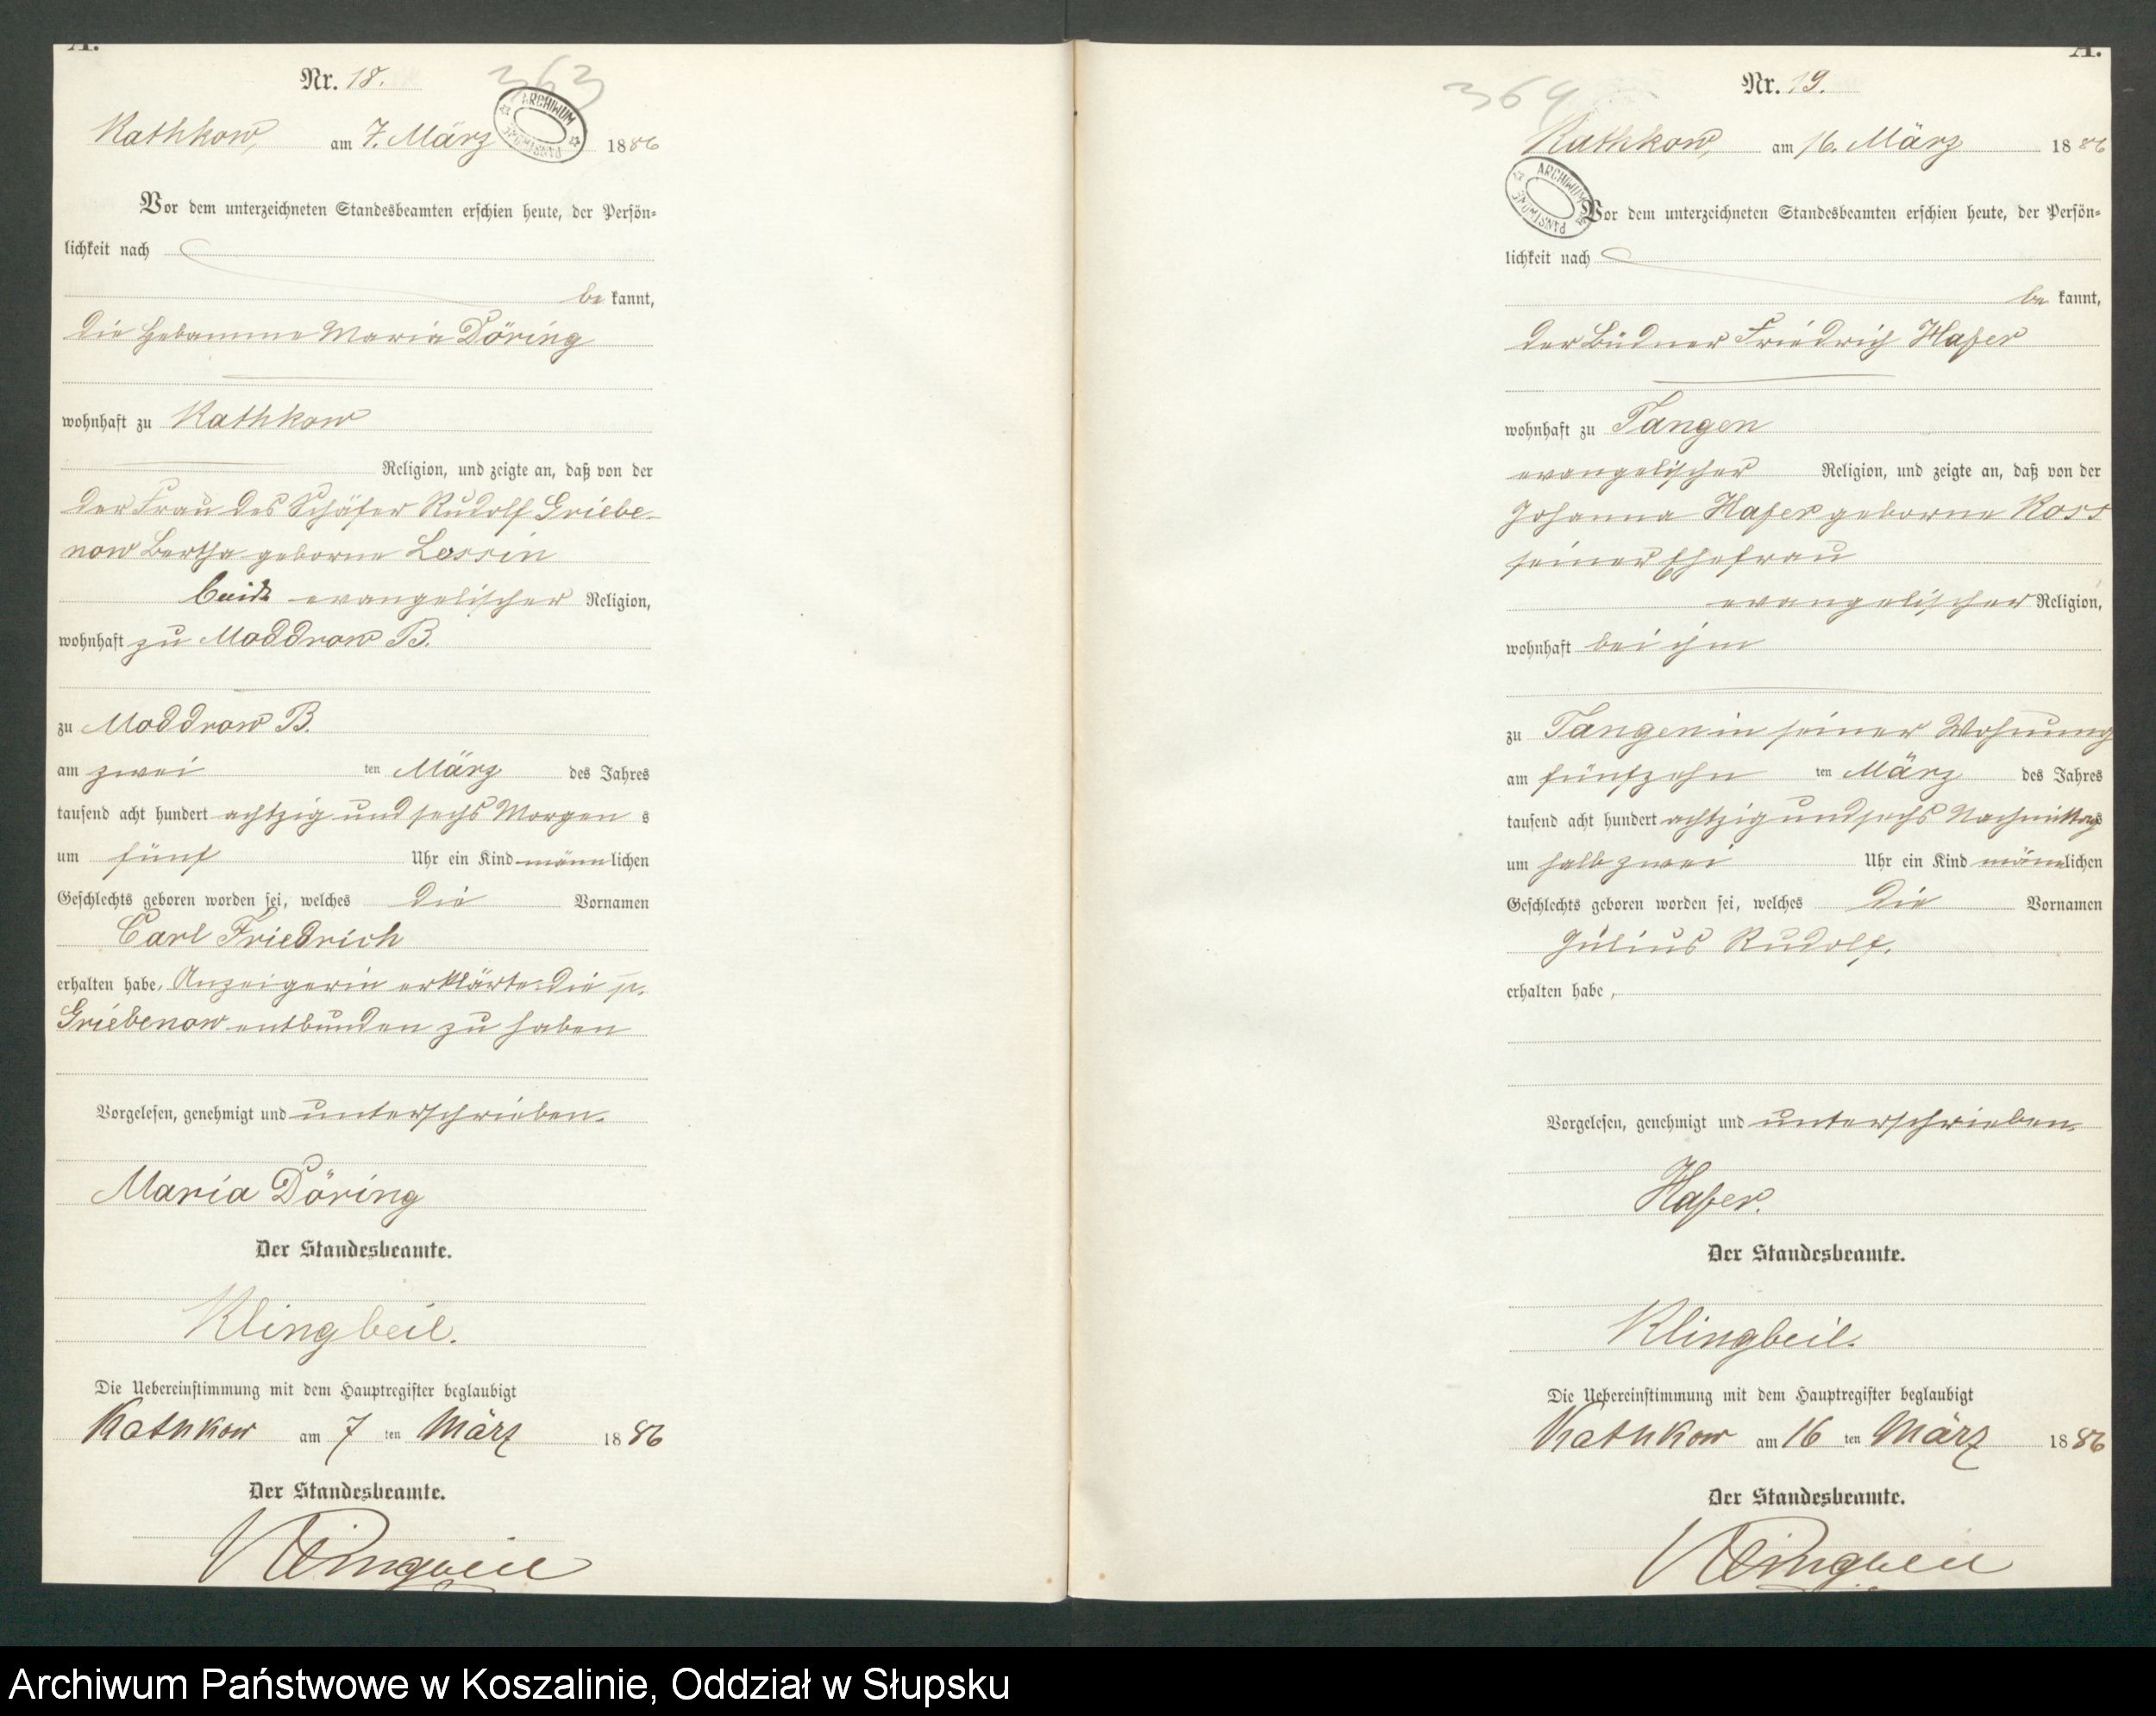 A.
Nr. 18.
363
ARCHIWUM
Kathkow, am 7. März 1886
Vor dem unterzeichneten Standesbeamten erschien heute, der Persön=
lichkeit nach
be kannt,
die Hebamme Maria Döring
wohnhaft zu Kathkow
Religion, und zeigte an, daß von der
der Frau des Schäfer Rudolf Griebe-
now Bertha geborne Lassin
beide evangelischer Religion,
wohnhaft zu Moddrow B.
zu Moddrow B.
am zwei ten März des Jahres
tausend acht hundert achtzig und sechs Morgen s
um fünf Uhr ein Kind männlichen
Geschlechts geboren worden sei, welches die Vornamen
Carl Friedrich
erhalten habe, Anzeigerin erklärte die p.
Griebenow entbunden zu haben
Vorgelesen, genehmigt und unterschrieben.
Maria Döring
Der Standesbeamte.
Klingbeil.
Die Uebereinstimmung mit dem Hauptregister beglaubigt
Kathkow am 7 ten März 1886
Der Standesbeamte.
Klingbeil
A.
Nr. 19.
364
Kathkow, am 16. März 1886
ARCHIWUM
Vor dem unterzeichneten Standesbeamten erschien heute, der Persön=
lichkeit nach
be kannt,
der Büdner Friedrich Hafer
wohnhaft zu Tangen
evangelischer Religion, und zeigte an, daß von der
Johanna Hafer geborne Koss
seiner Ehefrau
evangelischer Religion,
wohnhaft bei ihm
zu Tangen in seiner Wohnung
am fünfzehn ten März des Jahres
tausend acht hundert achtzig und sechs Nachmittags
um halb zwei Uhr ein Kind männlichen
Geschlechts geboren worden sei, welches die Vornamen
Julius Rudolf.
erhalten habe,
Vorgelesen, genehmigt und unterschrieben.
Hafer.
Der Standesbeamte.
Klingbeil.
Die Uebereinstimmung mit dem Hauptregister beglaubigt
Kathkow am 16 ten März 1886
Der Standesbeamte.
Klingbeil
Archiwum Państwowe w Koszalinie, Oddział w Słupsku